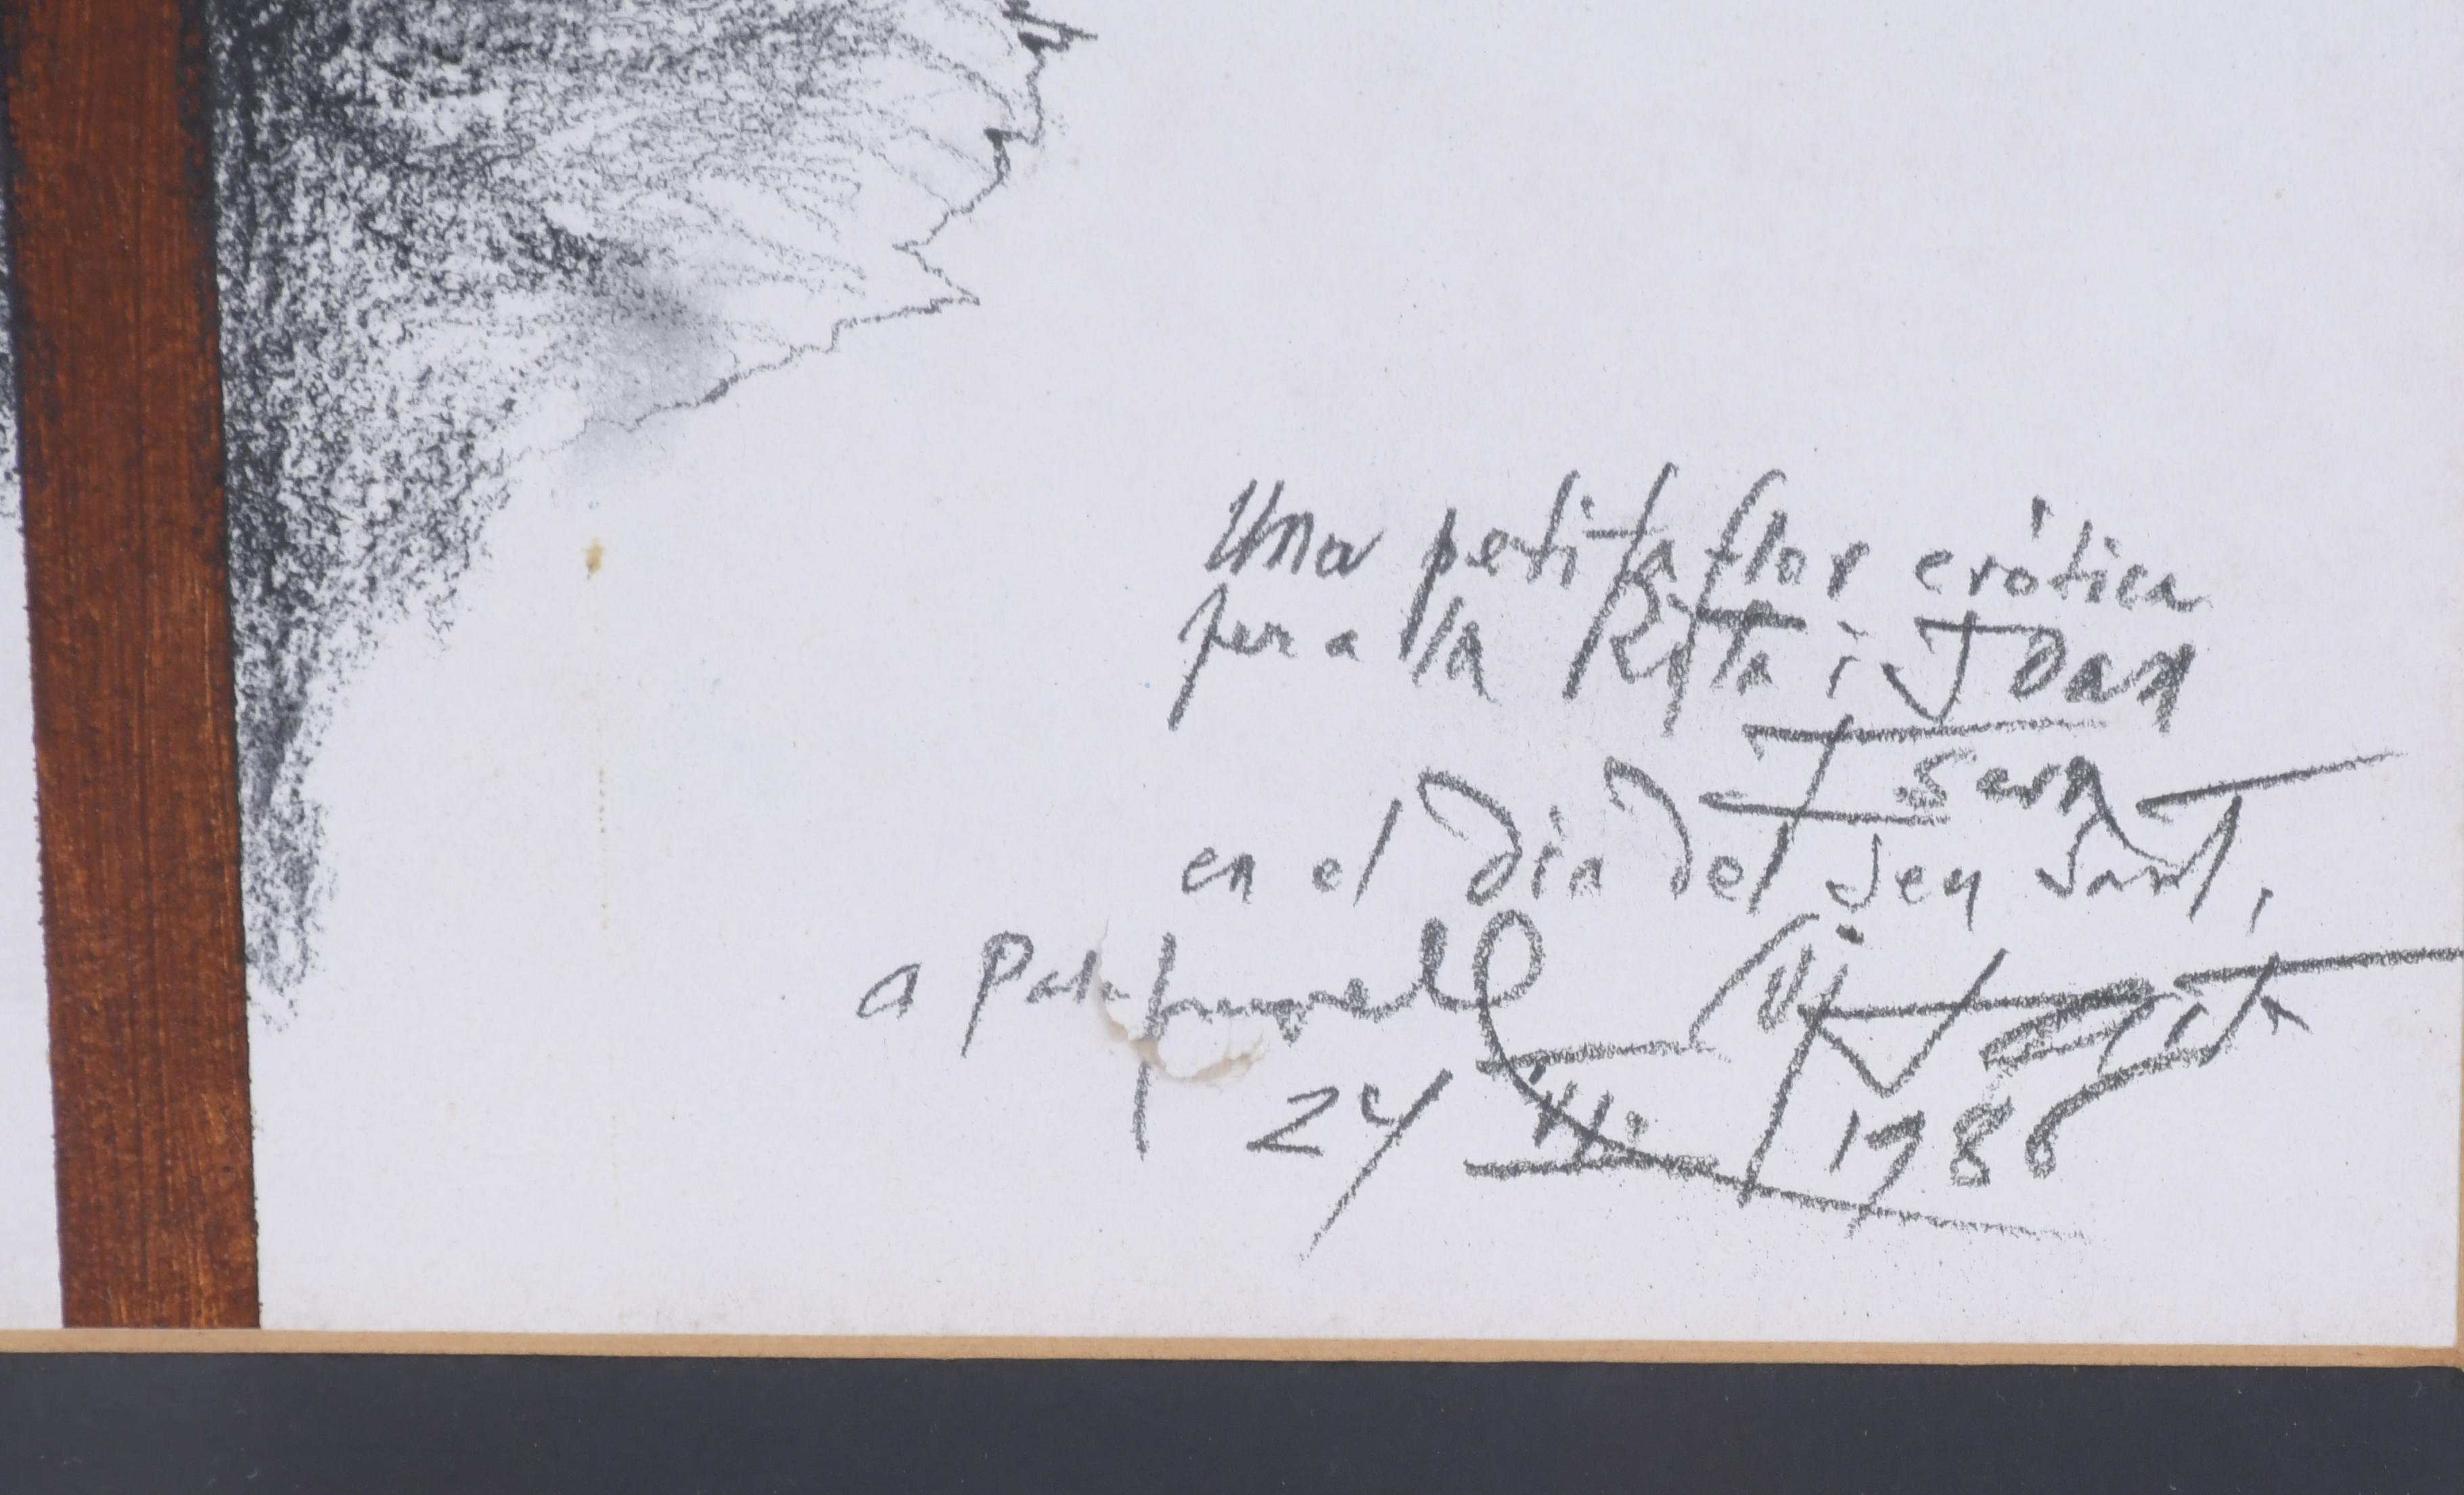 Una petita flor eròtica
per a la Rita i Joan
en el dia del seu sant,
a Palafrugell
24 VI 1986